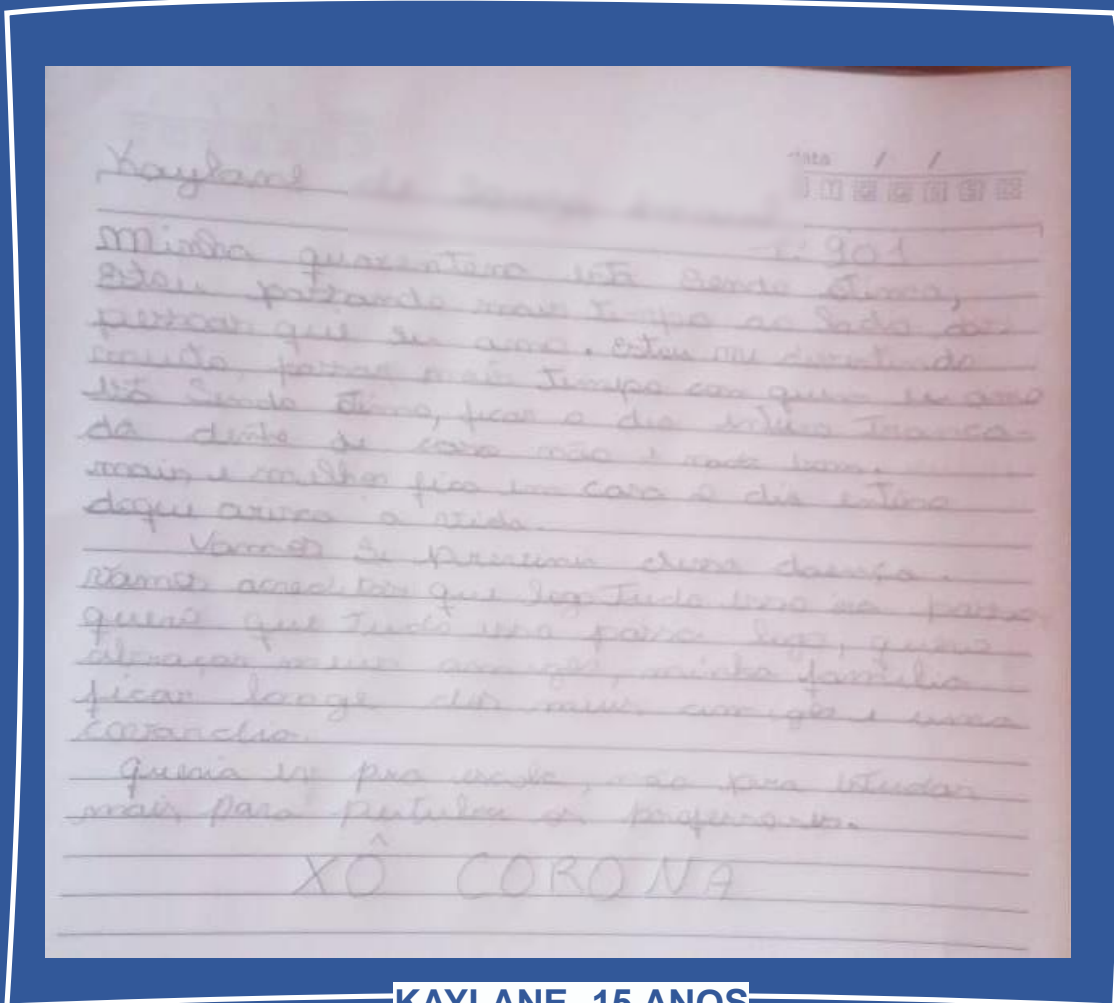 Kaylane
data / /
T: 901
Minha quarentena está sendo ótima,
estou passando mais tempo ao lado das
pessoas que eu amo. estou me divertindo
muito, passar mais tempo com quem eu amo
está sendo ótimo, ficar o dia inteiro tranca-
da dentro de casa não é nada bom.
mais é melhor fica em casa o dia inteiro
doque arisca a vida.
Vamos se previnir dessa doença.
Vamos acreditar que logo tudo isso vai passa
quero que tudo isso passa logo, quero
abraçar meus amigos, minha família
ficar longe dos meus amigos é uma
covardia.
Queria ir pra escola, não para estudar
mais para pertuba os professores.
XÔ CORONA
KAYLANE, 15 ANOS